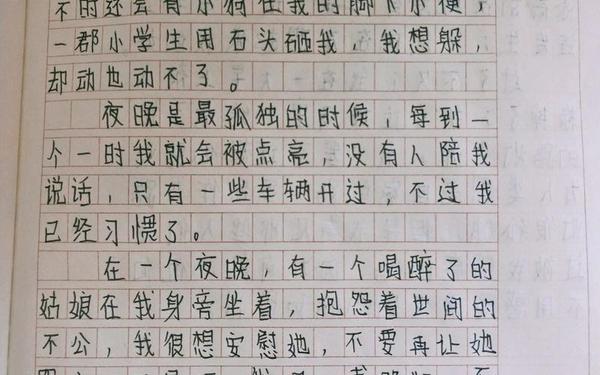 不时还会有小狗在我的脚下小便，
一郡小学生用石头砸我，我想躲，
却动也动不了。
夜晚是最孤独的时候，每到一
个一时我就会被点亮，没有人陪我
说话，只有一些车辆开过，不过我
已经习惯了。
在一个夜晚，有一个喝醉了的
姑娘在我身旁坐着，抱怨着世间的
不公，我很想安慰她，不要再让她